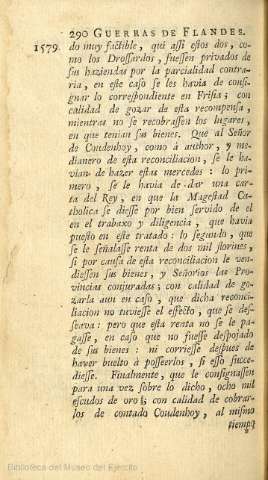 290 GUERRAS DE FLANDES.
1579. do muy factible, que assi estos dos, co-
mo los Drossardos, fuessen privados de
sus haziendas por la parcialidad contra-
ria, en este caso se les havia de consi-
gnar lo correspondiente en Frisa; con
calidad de gozar de esta recompensa,
mientras no se recobrassen los lugares,
en que tenian sus bienes. Que al Señor
de Coudenhoy, como à author, y me-
dianero de esta reconciliacion, se le ha-
vian de hazer estas mercedes: lo pri-
mero, se le havia de dar una car-
ta del Rey, en que la Magestad Ca-
tholica se diesse por bien servido de él
en el trabaxo y diligencia, que havia
puesto en este tratado: lo segundo, que
se le señalasse renta de dos mil florines,
si por causa de esta reconciliacion le ven-
diessen sus bienes, y Señorios las Pro-
vincias conjuradas; con calidad de go-
zarla aun en caso, que dicha reconci-
liacion no tuviesse el effecto, que se des-
seava: pero que esta renta no se le pa-
gasse, en caso que no fuesse despojado
de sus bienes: ni corriesse despues de
haver buelto à posseerlos, si esso succe-
diesse. Finalmente, que le consignassen
para una vez sobre lo dicho, ocho mil
escudos de oro; con calidad de cobrar-
los de contado Coudenhoy, al mismo
tiempo
Biblioteca del Museo del Ejército